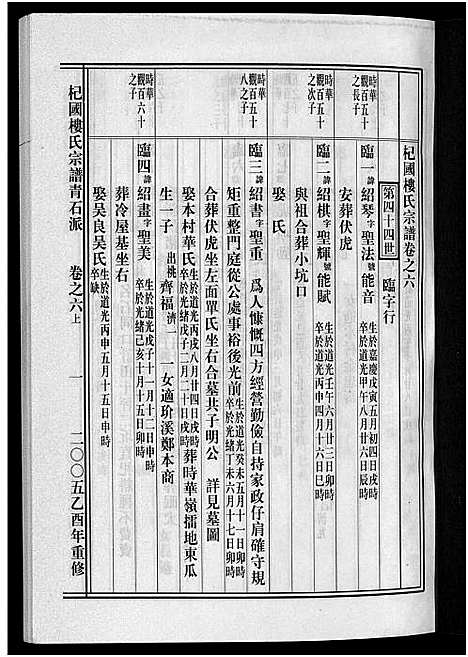 杞國樓氏宗譜卷之六
第四十四世　臨字行
時華
觀百五十
之長子
臨一諱紹琴字聖法號能音
生於嘉慶戊寅五月初四日戌時
卒於道光甲午八月廿六日辰時
安葬伏虎
時華
觀百五十
之次子
臨二諱紹棋字聖輝號能賦
生於道光壬午六月廿三日卯時
卒於道光丙申四月十六日巳時
與祖合葬小坑口
娶　氏
時華
觀百五十
八之子
臨三諱紹書字聖重　為人慷慨四方經營勤儉自持家政仔肩確守規
矩重整門庭從公處事裕後光前
生於道光癸未五月十一日卯時
卒於光緒丁未六月十七日卯時
合葬伏虎坐右左面單氏坐右合墓共子明公　詳見墓圖
娶本村華氏
生於道光丙戌八月廿四日戌時
卒於光緒戊子二月二十日戌時
葬時華嶺擂地東瓜
生一子　出桃齊福濟二　一女適玠溪鄭本商
時華
觀百六十
之子
臨四諱紹畫字聖美
生於道光戊子十一月十二日申時
卒於光緒己亥十月十五日卯時
葬冷屋基坐右
娶吳良吳氏
生於道光丙申五月十五日申時
卒缺
杞國樓氏宗譜青石派　卷之六上　一　二〇〇五乙酉年重修